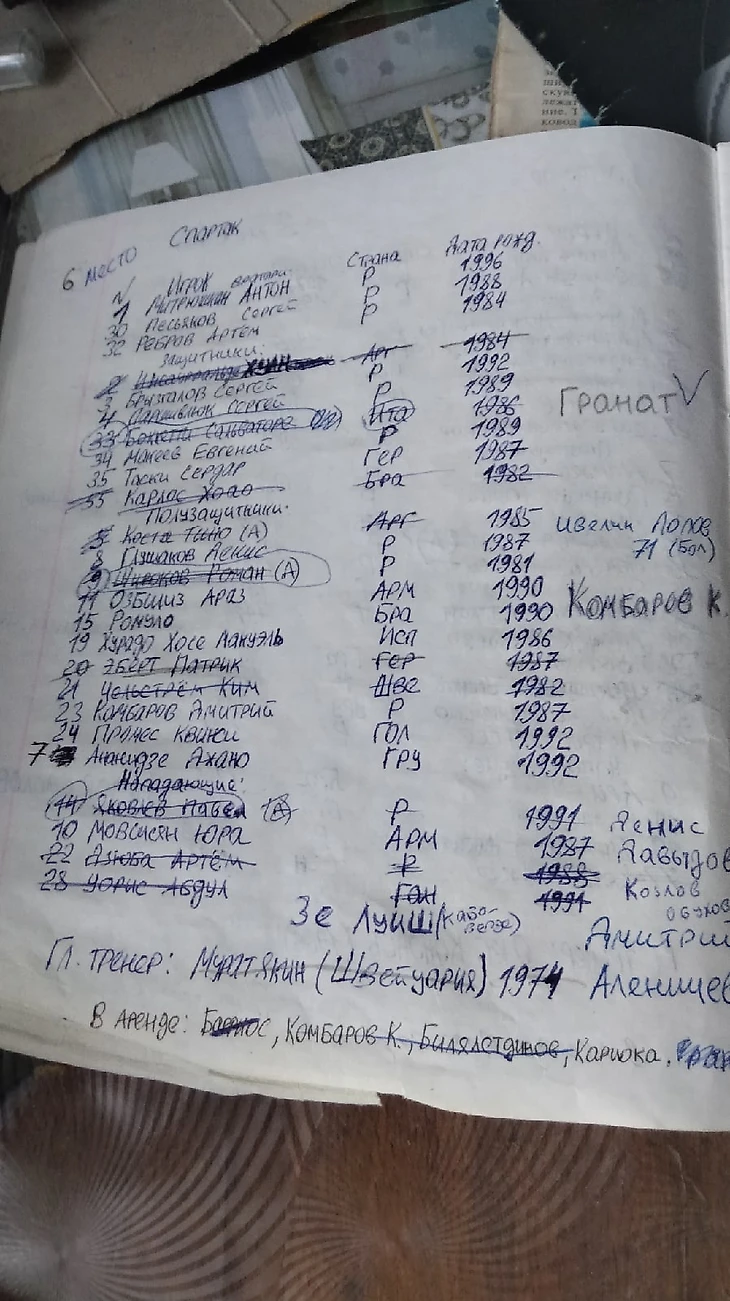 6 место Спартак
N Игрок Страна Дата рожд.
вратари:
1 Митрюшкин Антон Р 1996
30 Песьяков Сергей Р 1988
32 Ребров Артём Р 1984
Защитники:
2 Хуан Арг 1984
3 Брызгалов Сергей Р 1992
4 Паршивлюк Сергей Р 1989
33 Боккети Сальваторе Ита 1986 Гранат V
34 Макеев Евгений Р 1989
35 Таски Сердар Гер 1987
55 Карлос Жоао Бра 1982
Полузащитники:
5 Коста Тино (А) Арг 1985 Ивелин Попов
8 Глушаков Денис Р 1987 71 (Бол)
9 Широков Роман (А) Р 1981
11 Озбилиз Араз Арм 1990 Комбаров К.
15 Ромуло Бра 1990
19 Хурадо Хосе Мануэль Исп 1986
20 Эберт Патрик Гер 1987
21 Чельстрём Ким Шве 1982
23 Комбаров Дмитрий Р 1987
24 Промес Квинси Гол 1992
7 Ананидзе Джано Гру 1992
Нападающие:
14 Яковлев Павел (А) Р 1991 Денис
10 Мовсисян Юра Арм 1987 Давыдов
22 Дзюба Артём Р 1988 Козлов
28 Уорис Абдул Ган 1991 обухов
Зе Луиш (Кабо-верде) Дмитрий
Гл. тренер: Мурат Якин (Швейцария) 1974 Аленичев
В аренде: Барриос, Комбаров К., Билялетдинов, Кариока,